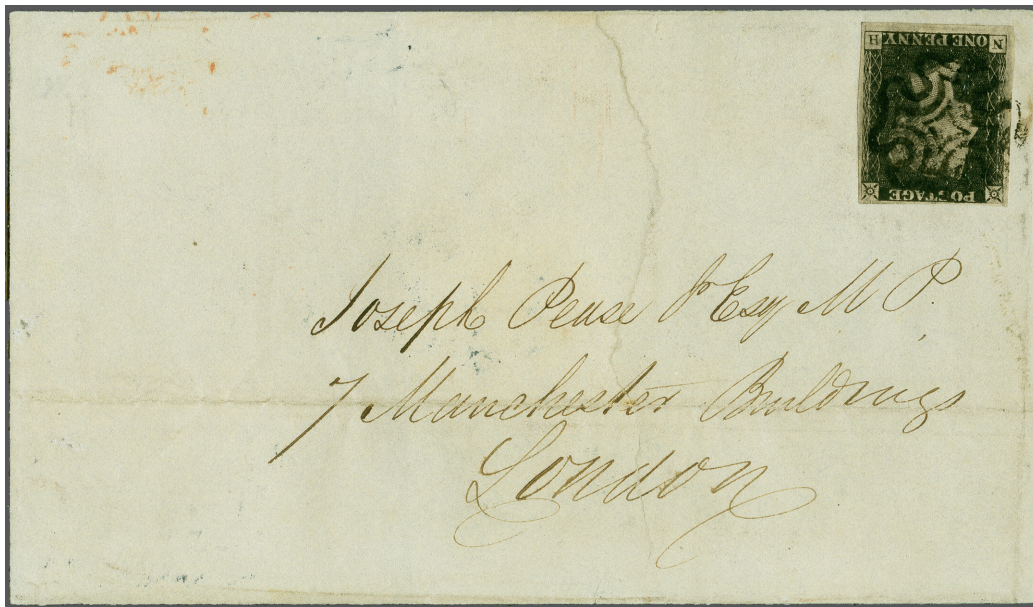 POSTAGE
N ONE PENNY H
Joseph Pease Jr Esq M P.
7 Manchester Buildings
London